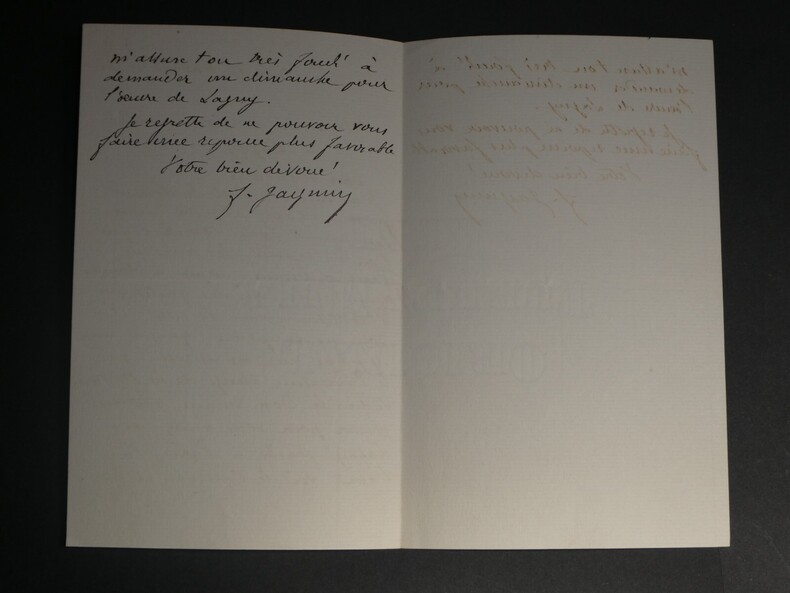 m'assure t'on très fondé à
demander un dimanche pour
l'œuvre de Lagny.
Je regrette de ne pouvoir vous
faire une reponse plus favorable
Votre bien dévoué